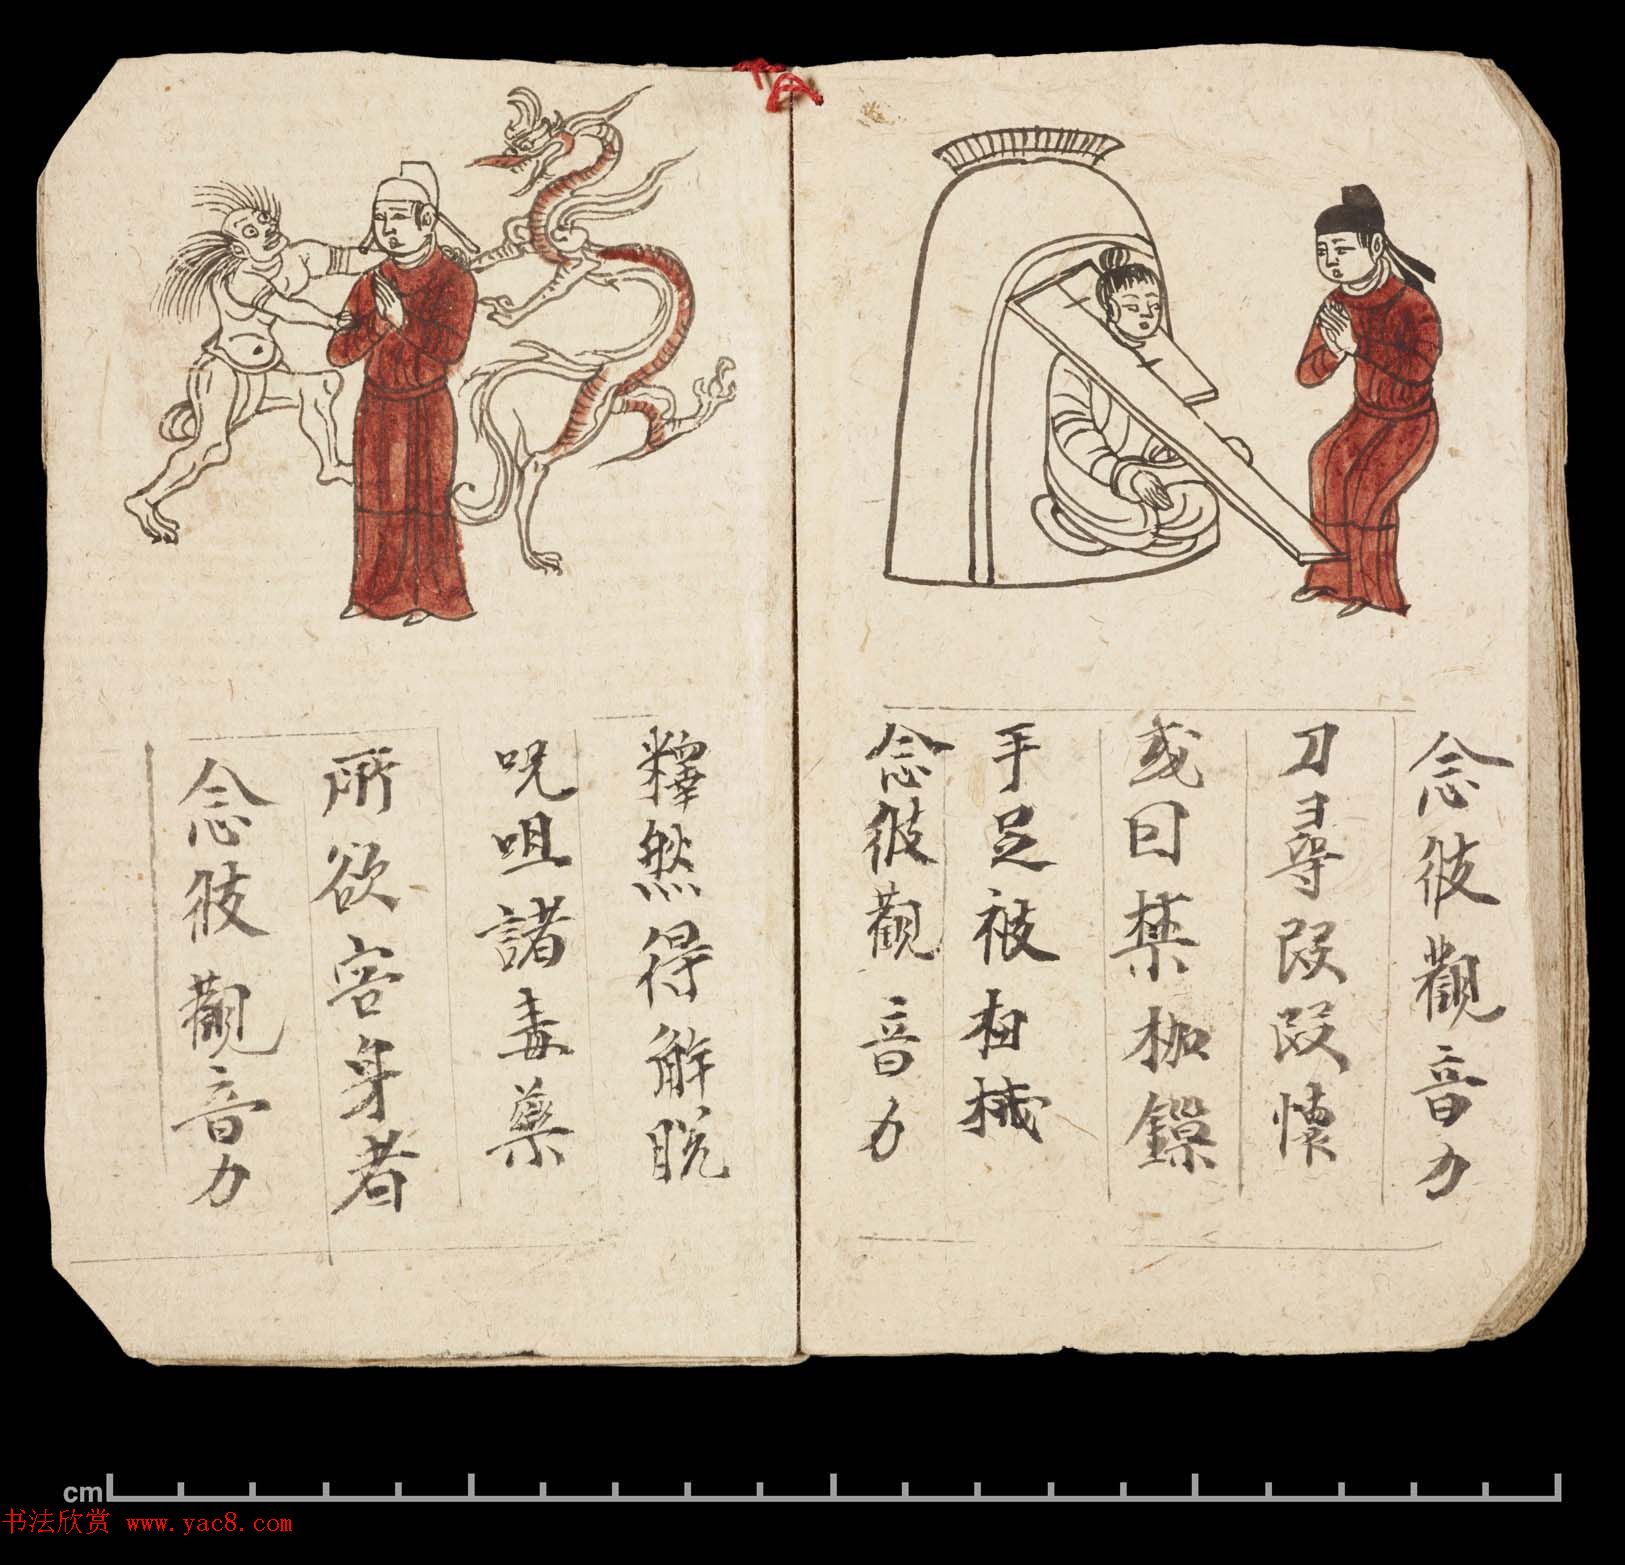 念彼觀音力
刀尋段段懷
或囙禁枷鏁
手足被杻械
念彼觀音力
釋然得解脱
呪咀諸毒藥
所欲害身者
念彼觀音力
cm
书法欣赏 www.yac8.com